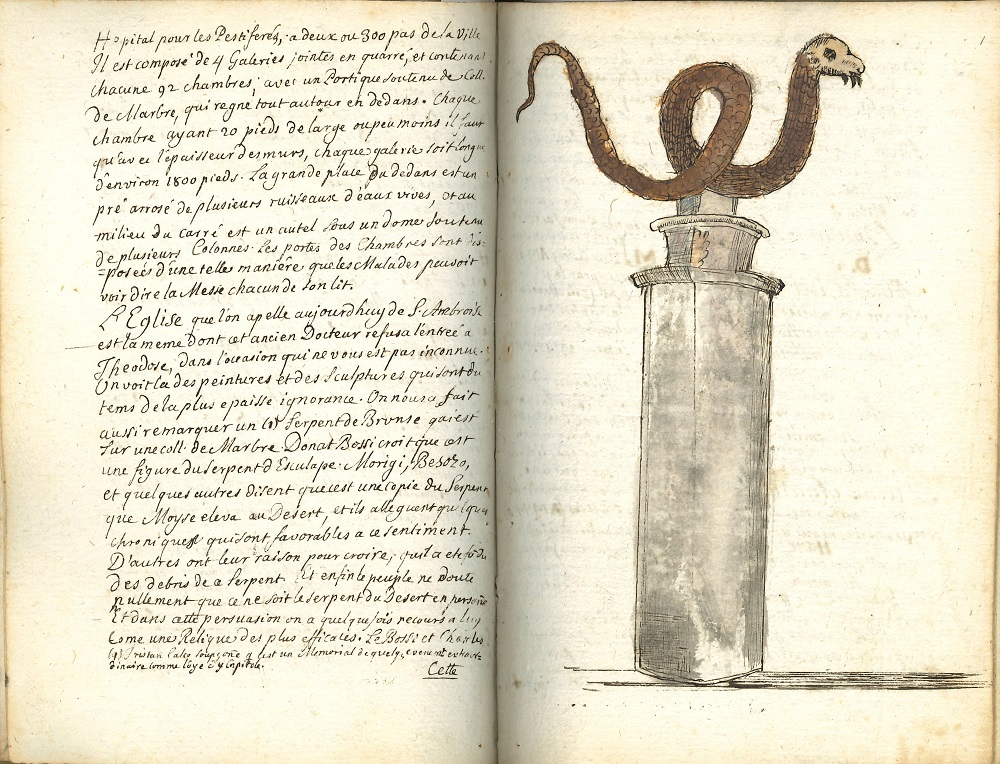 Hopital pour les Pestiferez, a deux ou 300 pas de la Ville
Il est composé de 4 Galeries jointes en quarré, et contenans
chacune 92 chambres; avec un Portique soutenu de Coll.
de Marbre, qui regne tout autour en dedans. Chaque
chambre ayant 20 pieds de large ou peu moins il faut
qu'avec l'epaisseur des murs, chaque galerie soit longue
d'environ 1800 pieds. La grande place du dedans est un
pré arrosé de plusieurs ruisseaux d'eaux vives, et au
milieu du carré est un autel sous un dome soutenu
de plusieurs Colonnes. Les portes des Chambres sont dis-
=posées d'une telle manière que les Malades peuvoit
voir dire la Messe chacun de son lit.
L'Eglise que l'on apelle aujourdhuy de St. Ambroise
est la meme dont cet ancien Docteur refusa l'entrée a
Theodose, dans l'occasion qui ne vous est pas inconnue.
On voit la des peintures et des sculptures qui sont du
tems de la plus epaisse ignorance. On nous a fait
aussi remarquer un (1) Serpent de Bronse qui est
sur une coll. de Marbre. Donat Bossi croit que cest
une figure du serpent d'Esculape. Morigi, Besozo,
et quelques autres disent que cest une copie du Serpent
que Moyse eleva au Desert, et ils alleguent quelques
chroniques qui sont favorables a ce sentiment.
D'autres ont leur raison pour croire, qu'il a eté fondu
des debris de ce serpent. Et enfin le peuple ne doute
nullement que ce ne soit le serpent du Desert en personne
Et dans cette persuasion on a quelquefois recours a luy
come une Relique des plus efficaces. Le Bossi et Charles
(1) Tristan Calco soupçone q. c'est un Memorial de quelq. evenemt. extraor-
dinaire comme l'oye du Capitole.
Cette